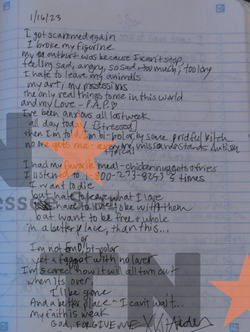 1/16/23
I got scammed again
I broke my figurine
my
was because I can't stop
feeling sad, angry, so sad, too long
I hate to leave my animals
my art, my possessions
the only real things to me in this world
and my Love - P.A.P.
I've been anxious all last week
all day today (stressed)
then I'm
bi-polar by some prideful bitch
no one
me - everyone misunderstands Autism
I had my favorite meal - chicken nuggets & fries
I listen to
00-273-8255 3 times
I want to die
but hate to leave what I love
hate to leave to be with them
but want to be free & whole
in a better place, than this...
I'm not
bi-polar
yet a
with no lover
I'm scared how it will all turn out
when it's over
I'll be gone
And a better place - I can't wait...
my faith is weak
God, FORGIVE ME